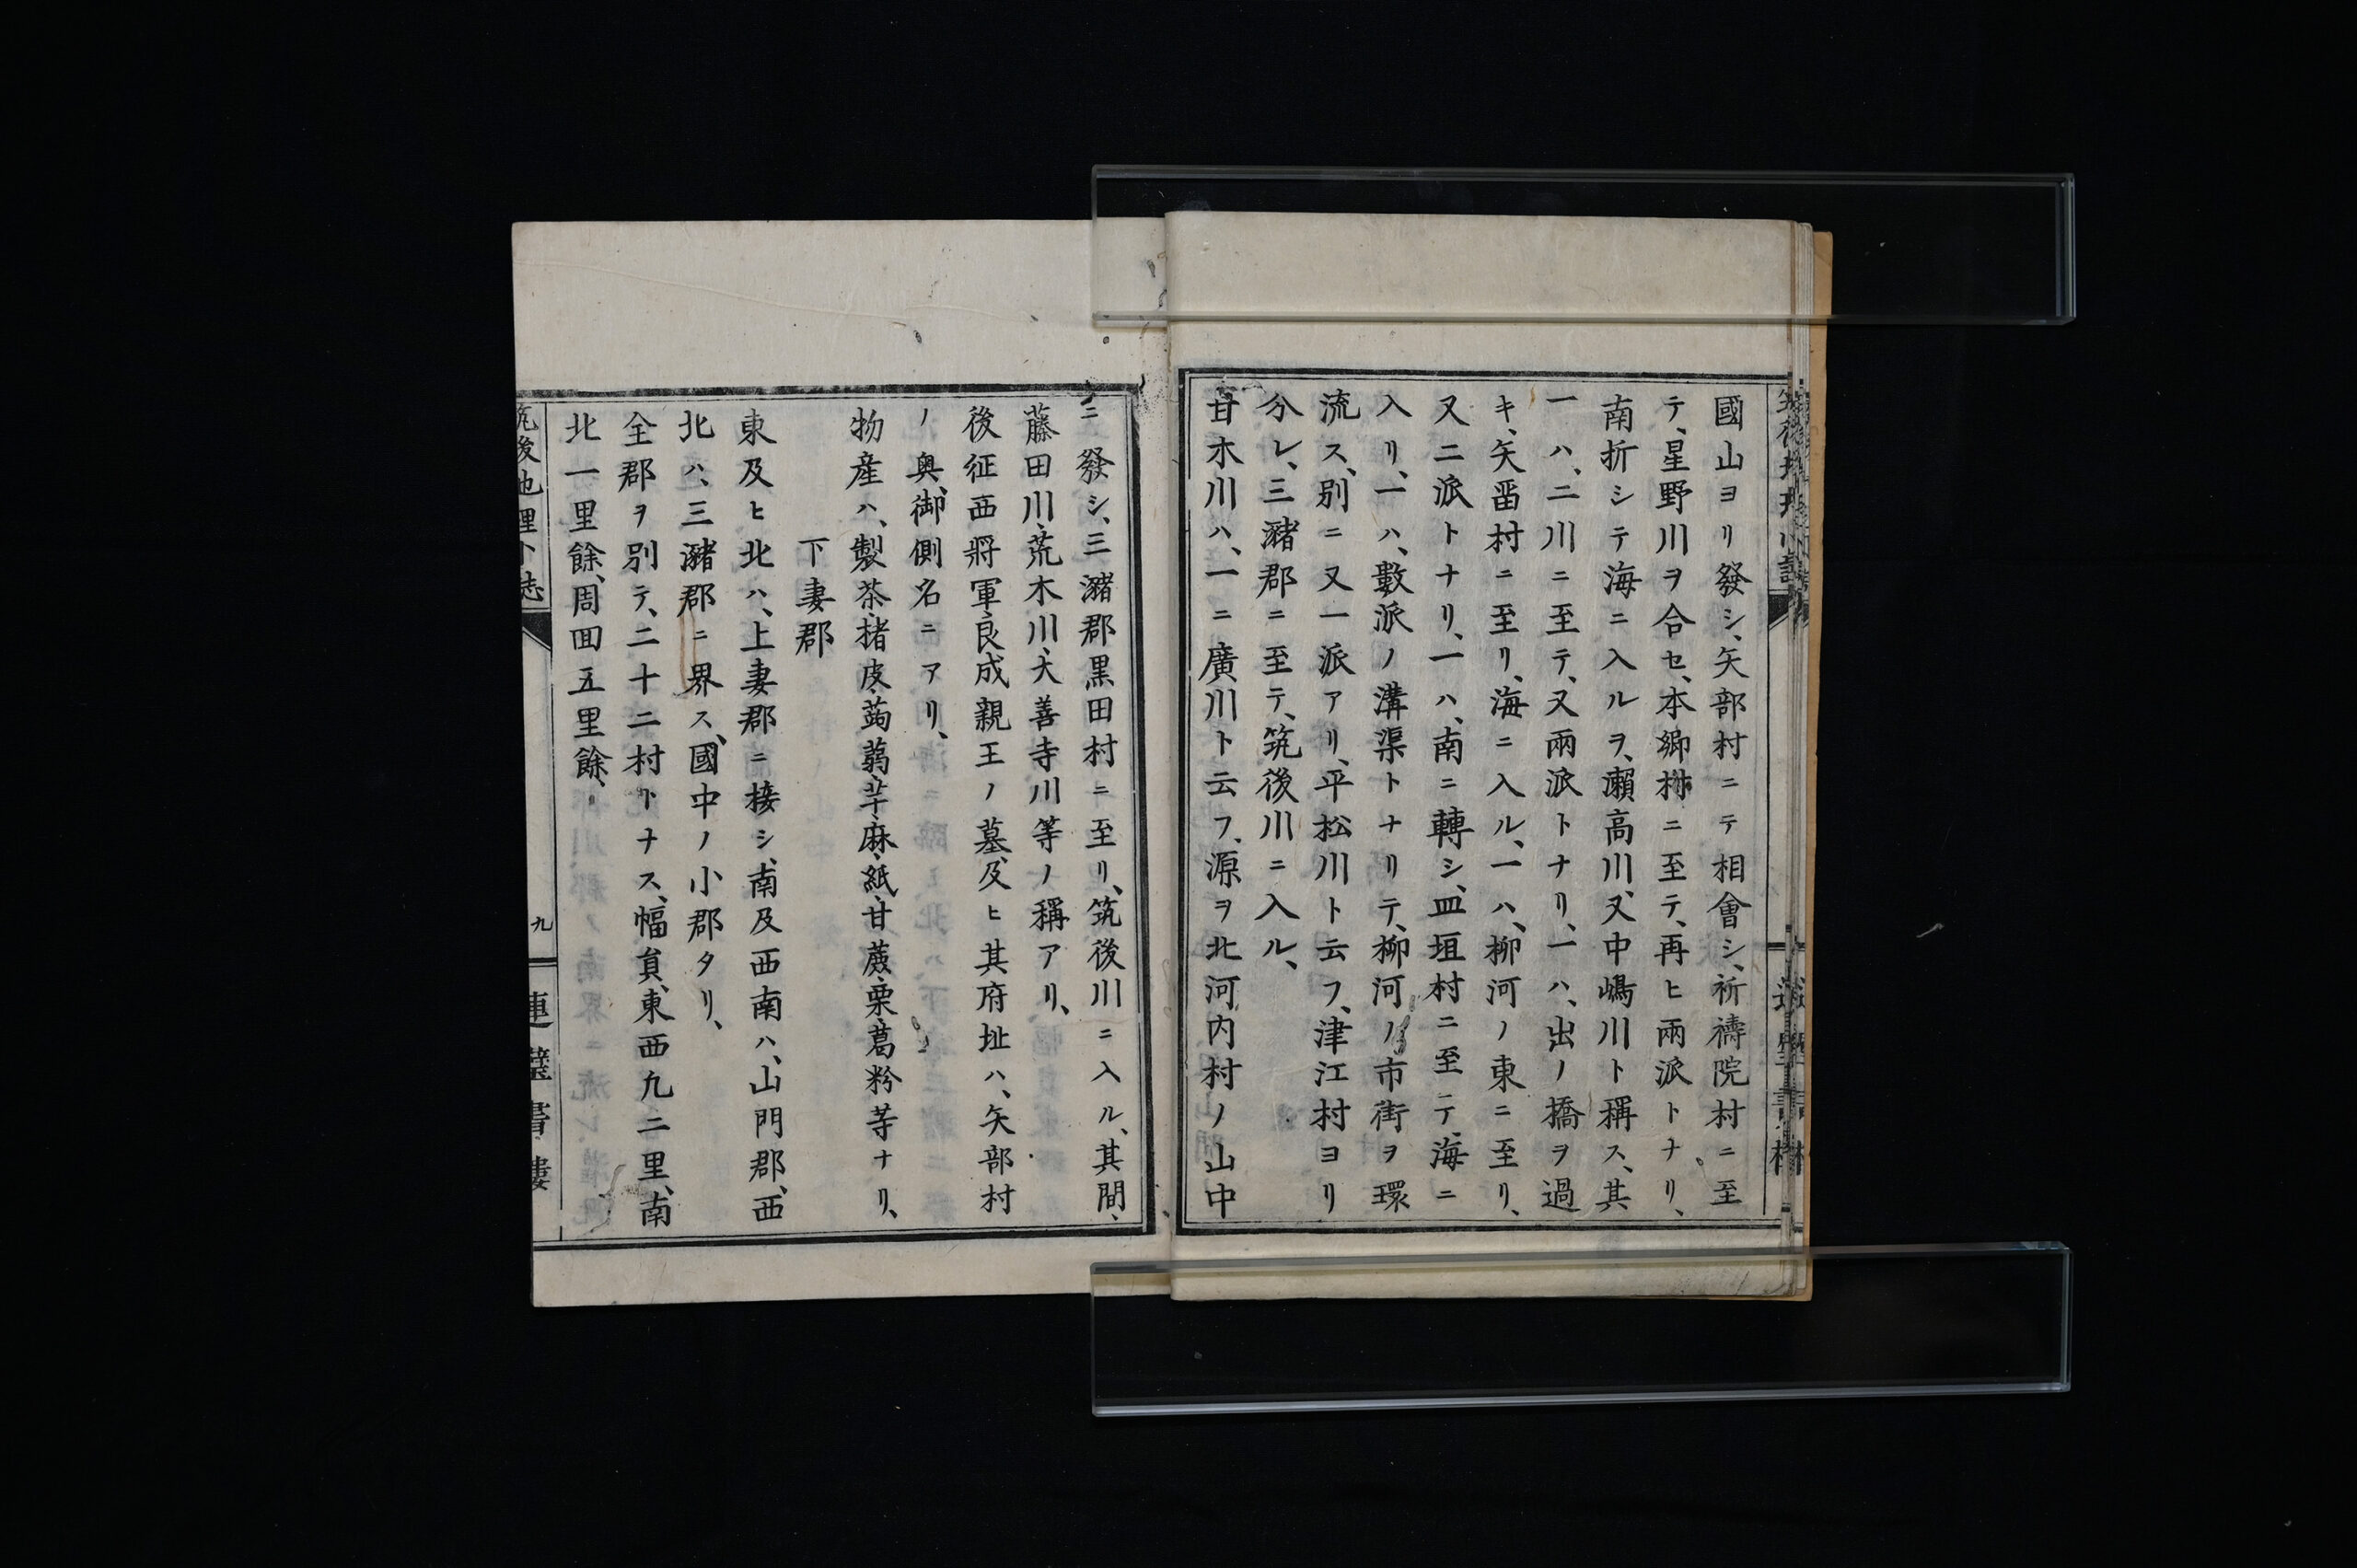 國山ヨリ發シ、矢部村ニテ相會シ、祈禱院村ニ至
テ、星野川ヲ合セ、本郷村ニ至テ、再ヒ兩派トナリ、
南折シテ海ニ入ルヲ、瀬高川、又中嶋川ト稱ス、其
一ハ、二川ニ至テ、又兩派トナリ、一ハ、出ノ橋ヲ過
キ、矢畱村ニ至リ、海ニ入ル、一ハ、柳河ノ東ニ至リ、
又二派トナリ、一ハ、南ニ轉シ、皿垣村ニ至テ、海ニ
入リ、一ハ、數派ノ溝渠トナリテ、柳河ノ市街ヲ環
流ス、別ニ又一派アリ、平松川ト云フ、津江村ヨリ
分レ、三瀦郡ニ至テ、筑後川ニ入ル、
甘木川ハ、一ニ廣川ト云フ、源ヲ北河内村ノ山中
ニ發シ、三瀦郡黒田村ニ至リ、筑後川ニ入ル、其間、
藤田川、荒木川、大善寺川等ノ稱アリ、
後征西將軍、良成親王ノ墓、及ヒ其府址ハ、矢部村
ノ奥、御側名ニアリ、
物産ハ、製茶、楮皮、蒟蒻芋、麻、紙、甘蔗、栗、葛粉等ナリ、
下妻郡
東及ヒ北ハ、上妻郡ニ接シ、南及西南ハ、山門郡、西
北ハ、三瀦郡ニ界ス、國中ノ小郡タリ、
全郡ヲ別テ、二十二村トナス、幅員、東西凡二里、南
北一里餘、周囬五里餘、
筑後地理小志
九
連璧書樓